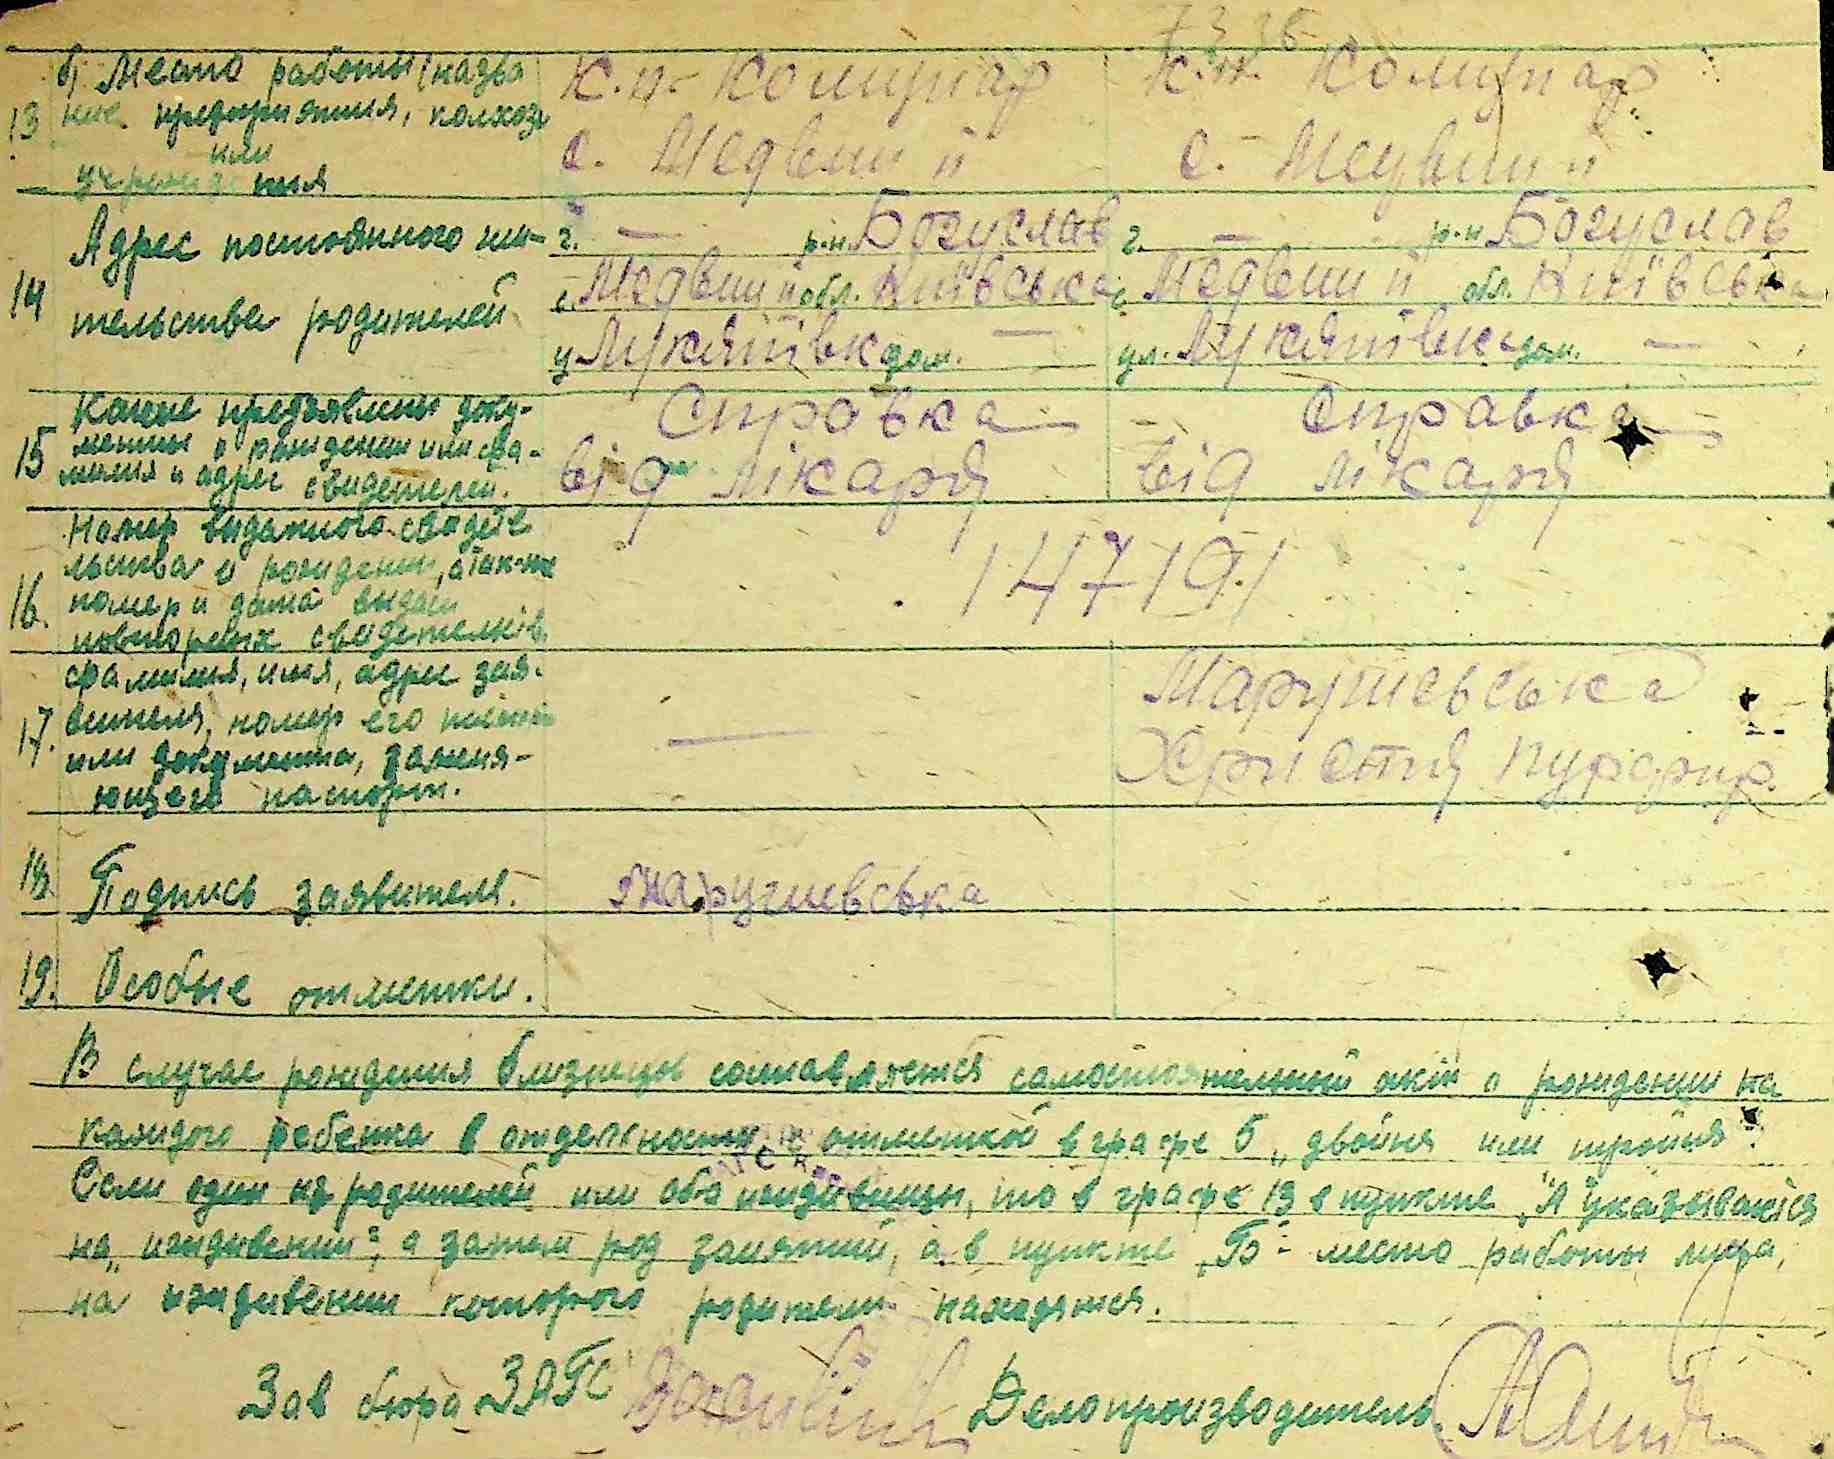 б) Место работы (назва
ние предприятия, колхоза
13
или
учреждения
к.п. Комунар
с. Медвин
к.п. Комунар
с. Медвин
14
Адрес постоянного жи-
тельства родителей
г. — р-н Богуслав
с. Медвин обл. Київська
у Лукянівк дом. —
г. — р-н Богуслав
с. Медвин обл. Київська
ул. Лукянівка дом. —
15
Какие предъявлены доку-
менты о рождении или фа-
милия и адрес свидетелей.
Справка
від лікаря
Справка
від лікаря
16.
Номер выданного свидете
льства о рождении, а так-же
номер и дата выдачи
повторных
147191
17.
фамилия, имя, адрес зая-
вителя, номер его
или документа, заменя-
ющего паспорт.
—
Марушевська
Христя
18.
Подпись заявителя.
Марушевська
19. Особые отметки.
В случае рождения близнецы составляется самостоятельный акт о рождении на
каждого ребенка в отдельности с отметкой в графе 6 „двойня или тройня".
Если один из родителей или оба иждивенцы, то в графе 13 в пункте „А" указывается
на „иждивении", а затем род занятий, а в пункте „Б" - место работы лица,
на иждивении которого родители находятся.
Зав бюро ЗАГС
Делопроизводитель